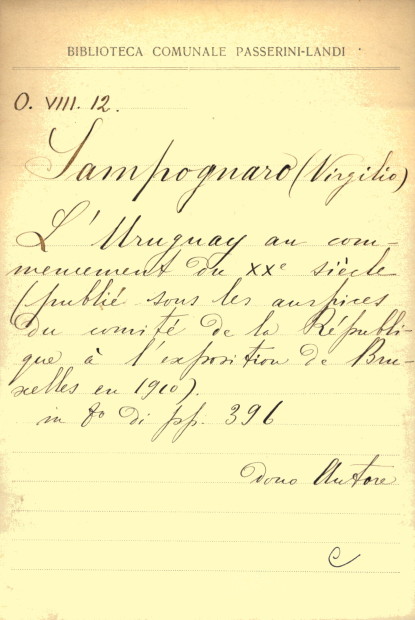 BIBLIOTECA COMUNALE PASSERINI-LANDI
O. VIII. 12.
Sampognaro (Virgilio)
L'Uruguay au com-
mencement du XXe siècle
(publié sous les auspices
du comité de la Républi-
que à l'exposition de Bru-
xelles en 1910).
in 8o di pp. 396
dono Autore
C